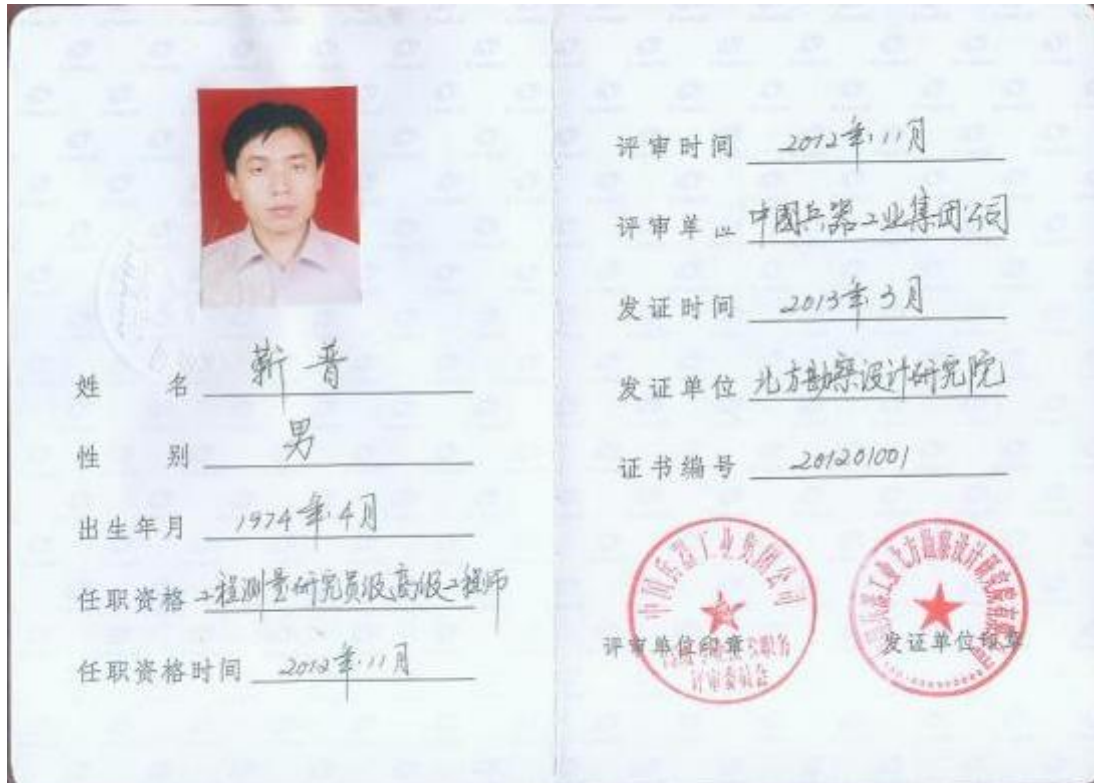 姓名 靳普
性别 男
出生年月 1974年4月
任职资格 工程测量研究员级高级工程师
任职资格时间 2012年11月
评审时间 2012年11月
评审单位 中国兵器工业集团公司
发证时间 2013年3月
发证单位 北方勘察设计研究院
证书编号 201201001
中国兵器工业集团公司
评审单位印章
评审委员会
发证单位印章